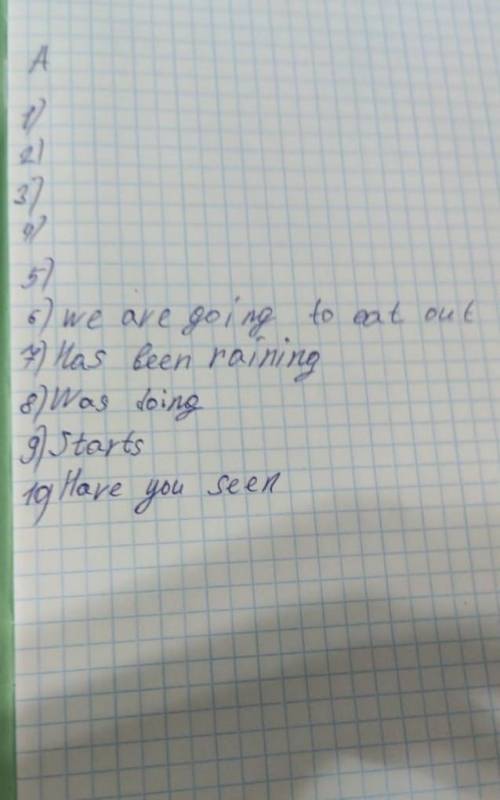 A
1)
2)
3)
4)
5)
6) we are going to eat out
7) Has been raining
8) Was doing
9) Starts
10) Have you seen